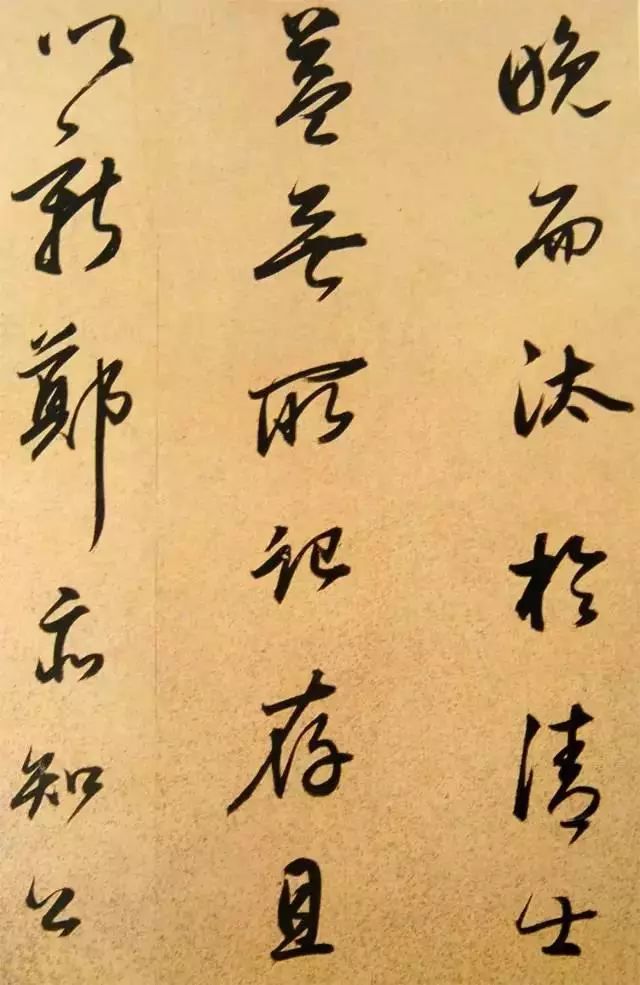 晚而汰於清士
盖無所記存且
以新鄭亦知公